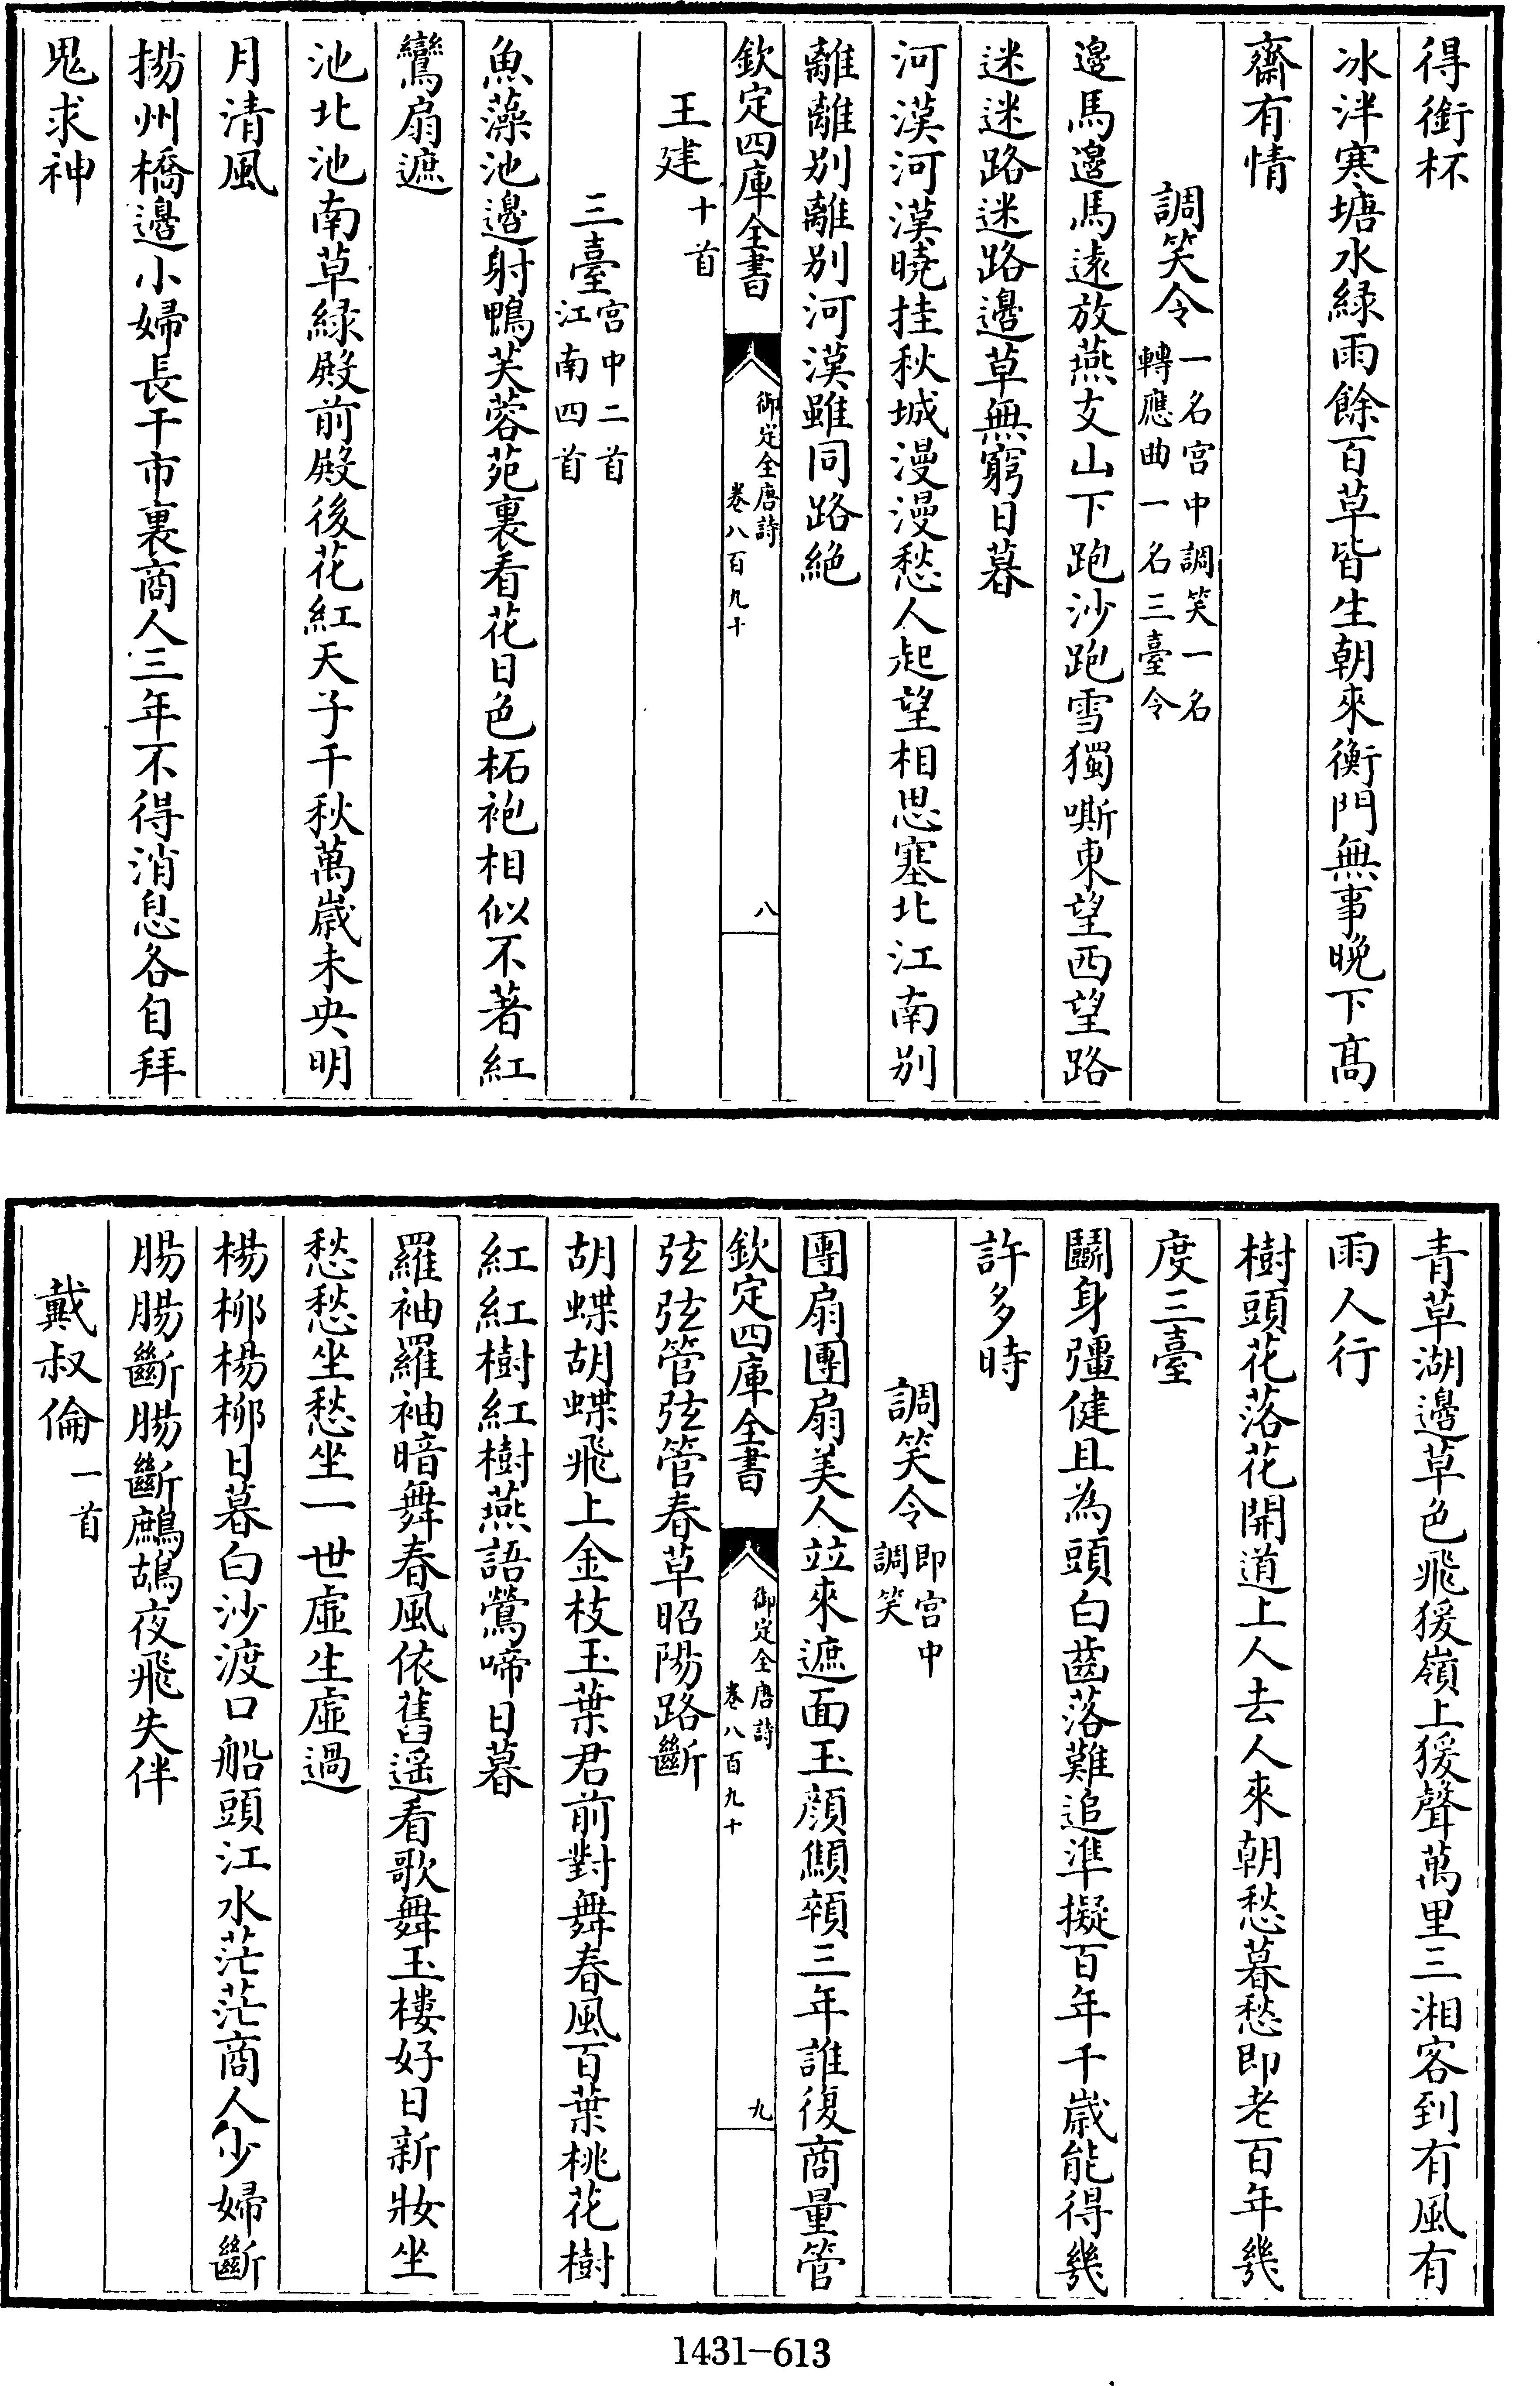 得銜杯
冰泮寒塘水緑雨餘百草皆生朝來衡門無事晚下髙
齋有情
調笑令一名宫中調笑一名
轉應曲一名三臺令
邉馬邉馬逺放燕支山下跑沙跑雪獨嘶東望西望路
迷迷路迷路邉草無窮日暮
河漢河漢曉挂秋城漫漫愁人起望相思塞北江南别
離離别離别河漢雖同路絶
欽定四庫全書
御定全唐詩
卷八百九十
八
王建十首
三臺宫中二首
江南四首
魚藻池邉射鴨芙蓉苑裏看花日色柘袍相似不著紅
鸞扇遮
池北池南草緑殿前殿後花紅天子千秋萬嵗未央明
月清風
揚州橋邉小婦長干市裏商人三年不得消息各自拜
鬼求神
青草湖邉草色飛猨嶺上猨聲萬里三湘客到有風有
雨人行
樹頭花落花開道上人去人來朝愁暮愁即老百年幾
度三臺
鬭身彊健且為頭白齒落難追準擬百年千嵗能得幾
許多時
調笑令即宫中
調笑
團扇團扇美人竝來遮面玉顔顦顇三年誰復商量管
欽定四庫全書
御定全唐詩
卷八百九十
九
弦弦管弦管春草昭陽路斷
胡蝶胡蝶飛上金枝玉葉君前對舞春風百葉桃花樹
紅紅樹紅樹燕語鶯啼日暮
羅袖羅袖暗舞春風依舊遥看歌舞玉樓好日新妝坐
愁愁坐愁坐一世虚生虚過
楊柳楊柳日暮白沙渡口船頭江水茫茫商人少婦斷
腸腸斷腸斷鷓鴣夜飛失伴
戴叔倫一首
1431-613